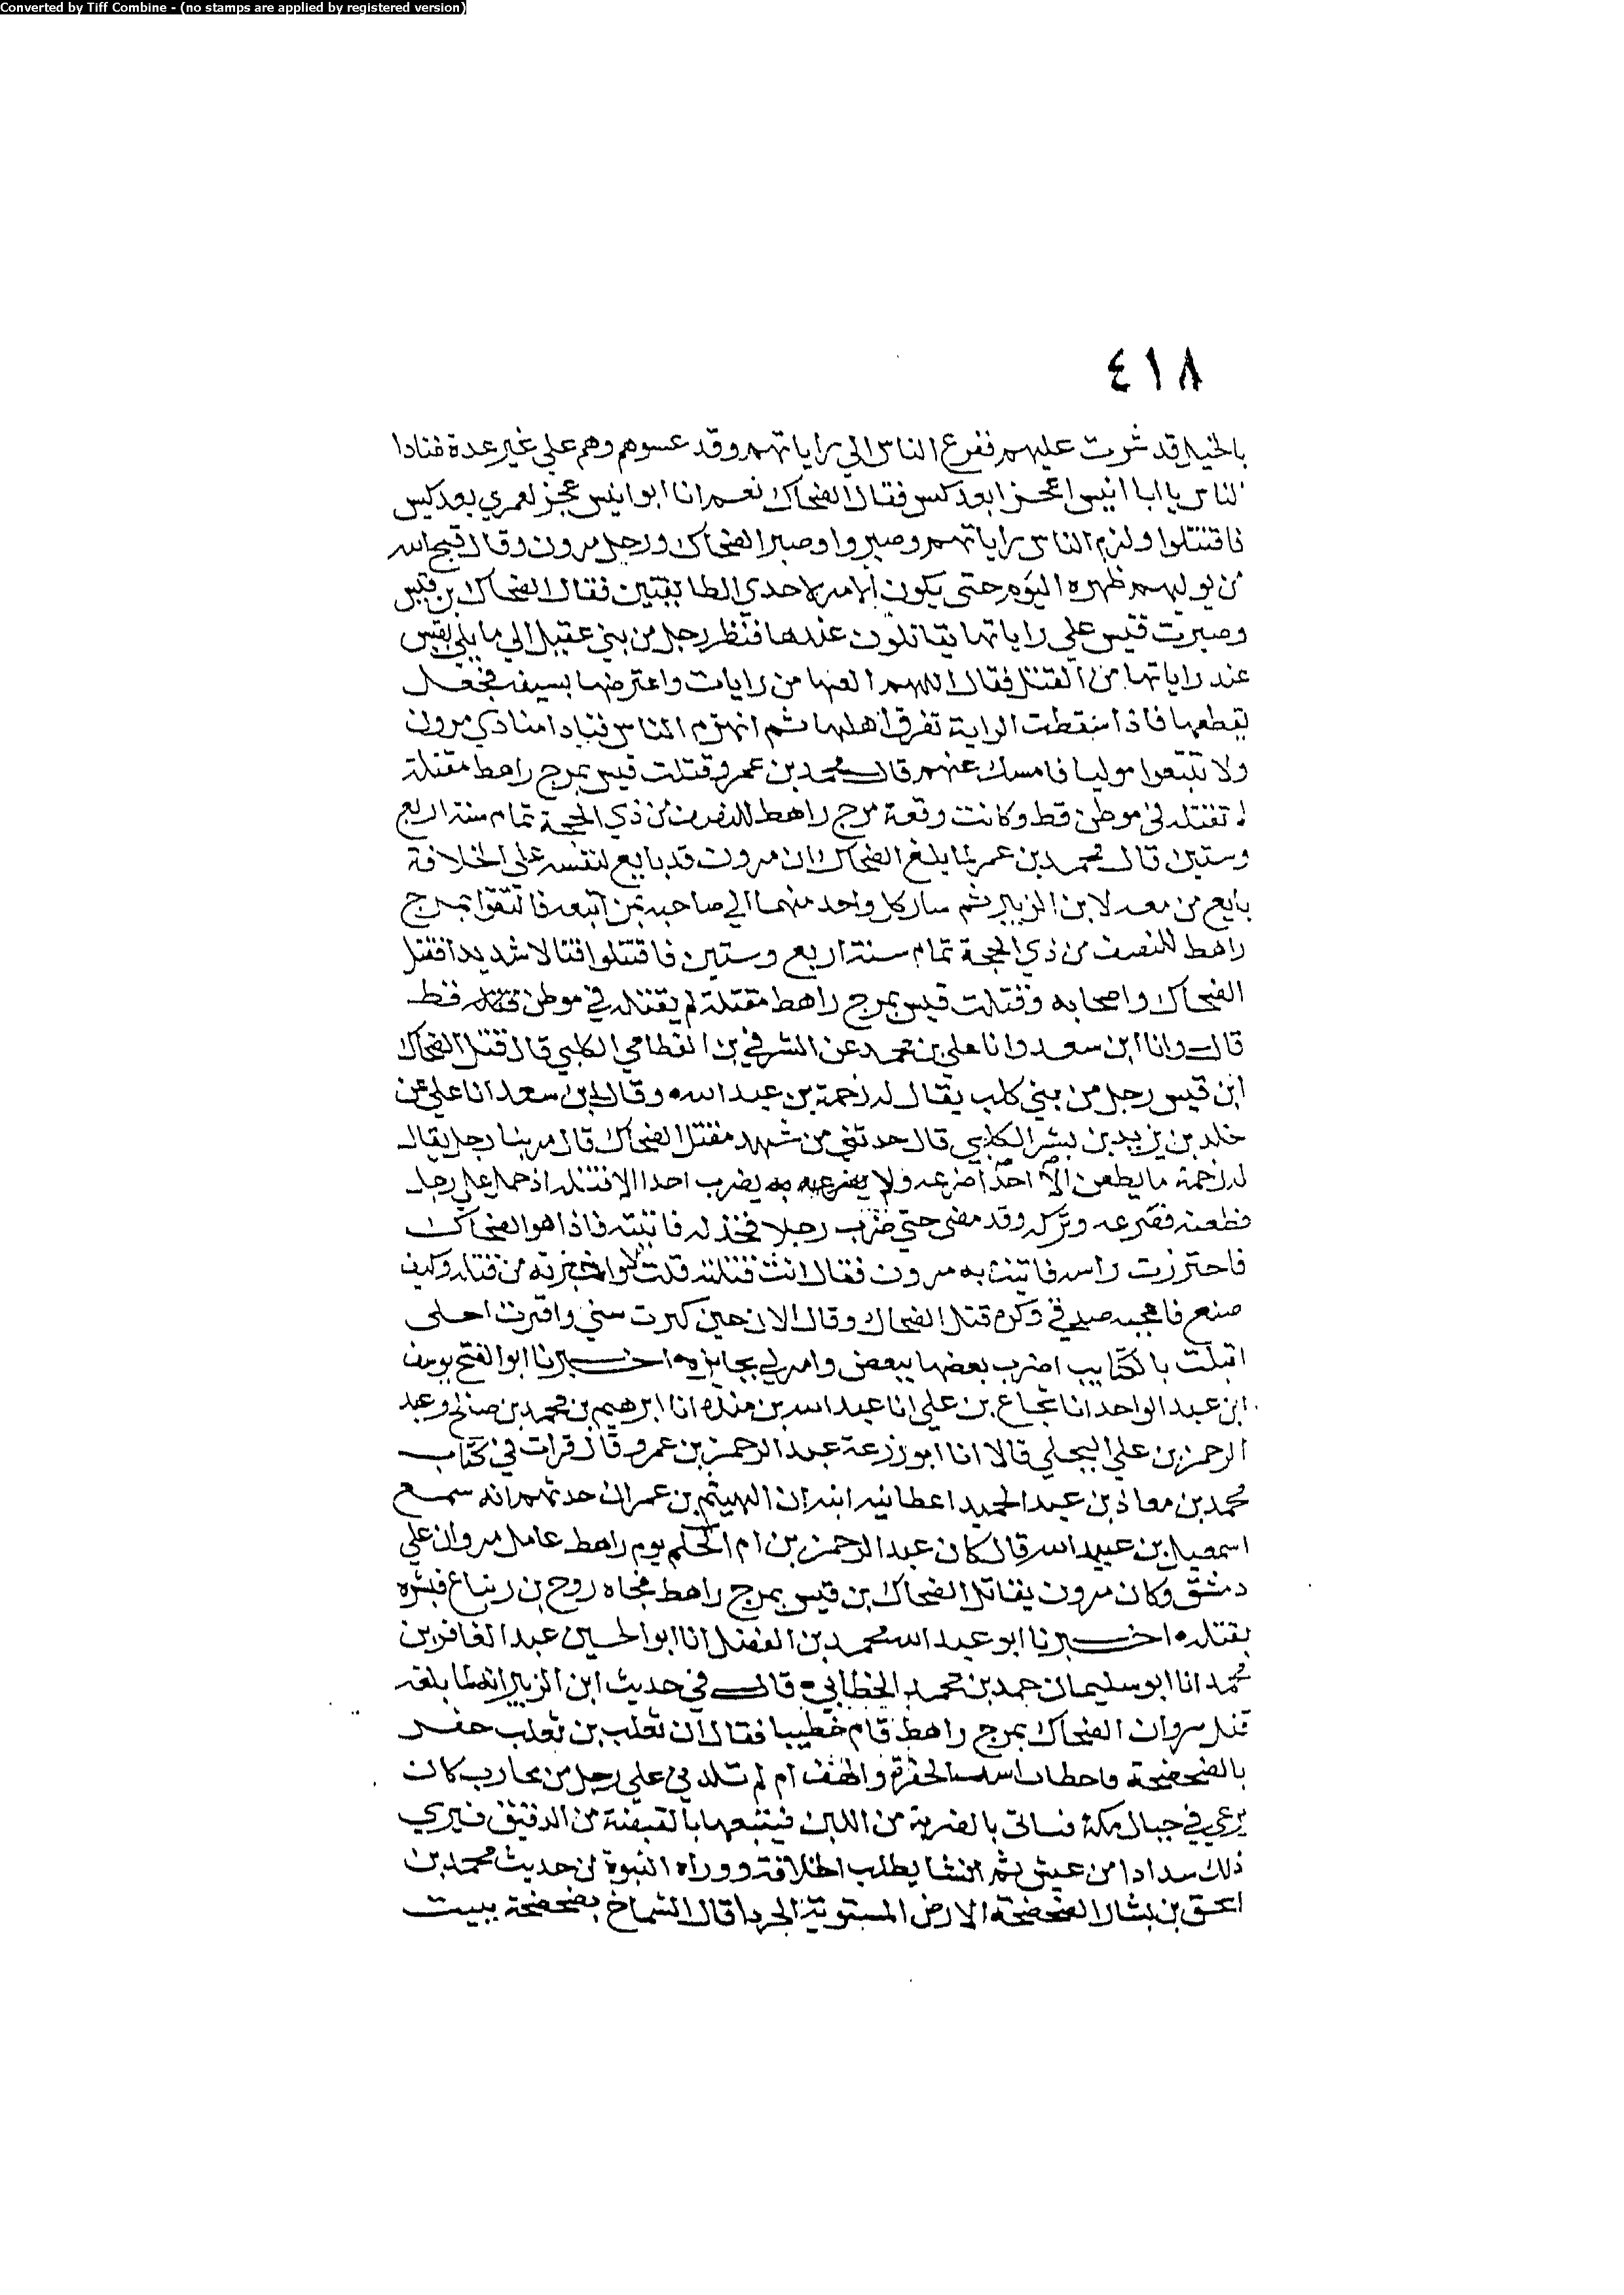 Converted by Tiff Combine - (no stamps are applied by registered version)
٤١٨
بالخيل قد شرت عليهم ففزع الناس الي راياتهم وقد عسوهم وهم علي غير عدة فنادا
الناس يا ابا انيس اعجزا بعد كيس فقال الضحاك نعم انا ابو انيس عجز لعمري بعد كيس
فاقتتلوا ولزم الناس راياتهم وصبروا وصبر الضحاك ورجل مرون وقال قبح الله
من يوليهم ظهره اليوم حتى يكون الامر لاحدي الطايفتين فقتل الضحاك بن قيس
وصبرت قيس علي راياتها يقاتلون عندها فنظر رجل من بني عقيل الي ما يلي بقيس
عند راياتها من القتل فقال اللهم العنها من رايات واعترضها بسيفه فجعل
يقطعها فاذا سقطت الراية تفرق اهلها ثم انهزم الناس فنادا منادي مرون
ولا تتبعوا موليا فامسك عنهم قال محمد بن عمر وقتلت قيس بمرج راهط مقتلة
لم تقتله في موطن قط وكانت وقعة مرج راهط للنصف من ذي الحجة تمام سنة اربع
وستين قال محمد بن عمر لما بلغ الضحاك ان مرون قد بايع لنفسه على الخلافة
بايع من معه لابن الزبير ثم سار كل واحد منهما الي صاحبه بمن اتبعه فالتقوا بمرج
راهط للنصف من ذي الحجة تمام سنة اربع وستين فاقتتلوا قتالا شديدا فقتل
الضحاك واصحابه وقتلت قيس بمرج راهط مقتلة لم يقتله في موطن قط
قال وانا ابن سعد وانا علي بن محمد عن الشرقي بن القطامي الكلبي قال قتل الضحاك
ابن قيس رجل من بني كلب يقال له زحمة بن عبد الله وقال ابن سعد انا علي عن
خلد بن يزيد بن بشر الكلبي قال حدثني من شهد مقتل الضحاك قال مر بنا رجل يقال
له زحمة ما يطعن احدا الا صرعه ولا يضرب احدا الا قتله اذ حمل علي رجل
فطعنه فصرعه وتركه وقد مضى حتي ضرب رجلا فخذله فاتيته فاذا هو الضحاك
فاحترزت راسه فاتيت به مرون فقال انت قتلته قلت لا واخبرته من قتله وكيف
صنع فاعجبه صدقي وكره قتل الضحاك وقال الان حين كبرت سني واقترب اجلي
اقبلت بالكتايب اضرب بعضها ببعض وامر لي بجايزه اخبرنا ابو الفتح يوسف
ابن عبد الواحد انا شجاع بن علي انا عبد الله بن منده انا ابرهيم بن محمد بن صالح وعبد
الرحمن بن علي البجلي قالا انا ابو زرعة عبد الرحمن بن عمرو قال قرات في كتاب
محمد بن معاذ بن عبد الحميد اعطانيه ابنه ان الهيثم بن عمران حدثهم انه سمع
اسمعيل بن عبيد الله قال كان عبد الرحمن بن ام الحكم يوم راهط عامل مروان علي
دمشق وكان مرون يقاتل الضحاك بن قيس بمرج راهط فجاه روح بن زنباع فبشره
بقتله اخبرنا ابو عبد الله محمد بن الفضل انا ابو الحسين عبد الغافر بن
محمد انا ابو سليمان حمد بن محمد الخطابي قال في حديث ابن الزبير انه لما بلغه
قتل مروان الضحاك بمرج راهط قام خطيبا فقال ان ثعلب بن ثعلب حفر
بالضحضحة فاخطات استه الحفرة والهف ام لم تلدني علي رجل من محارب كان
يرعي في جبال مكة فياتي بالضربة من اللبن فيتبعها بالقبضة من الدقيق فيري
ذلك سدادا من عيش ثم انشا يطلب الخلافة ووراه النبوة من حديث محمد بن
اسحق بن بشار الضحضحة الارض المستوية الجردا قال الشماخ بضحضحة يبيت